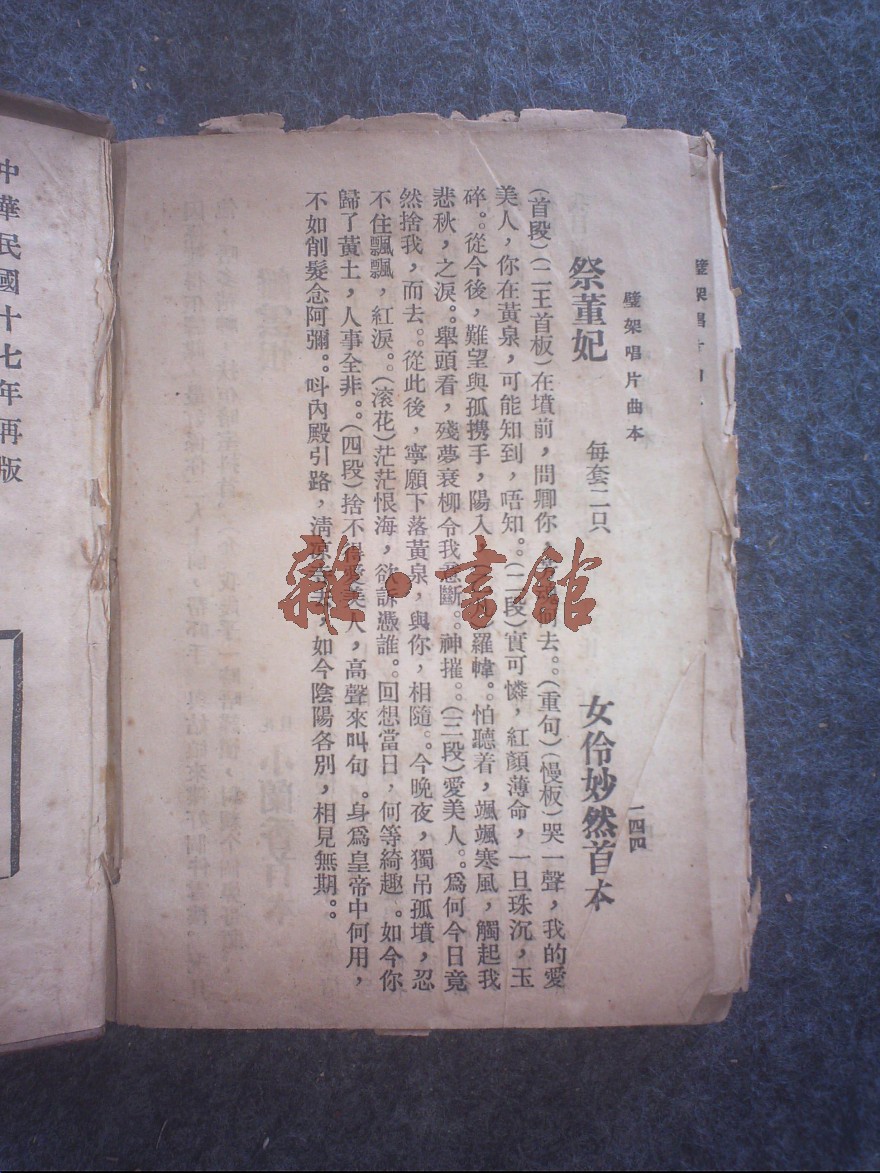 璧架唱片曲本
一四四
祭董妃
每套二只
女伶妙然首本
(首段)(二王首板)在墳前，問卿你，去。。(重句)(慢板)哭一聲，我的愛
美人，你在黃泉，可能知到，唔知。。(二段)實可憐，紅顏薄命，一旦珠沉，玉
碎。。從今後，難望與孤携手，陽入，羅幃。。怕聽着，颯颯寒風，觸起我
悲秋，之淚。。舉頭看，殘夢衰柳令我斷。。神摧。。(三段)愛美人。。爲何今日竟
然捨我，而去。。從此後，寧願下落黃泉，與你，相隨。。今晚夜，獨吊孤墳，忍
不住飄飄，紅淚。。(滚花)茫茫恨海，欲訴憑誰。。回想當日，何等綺趣。。如今你
歸了黃土，人事全非。。(四段)捨不得美人，高聲來叫句。身爲皇帝中何用，
不如削髮念阿彌。。呌內殿引路，淸凉去，如今陰陽各別，相見無期。。
中華民國十七年再版